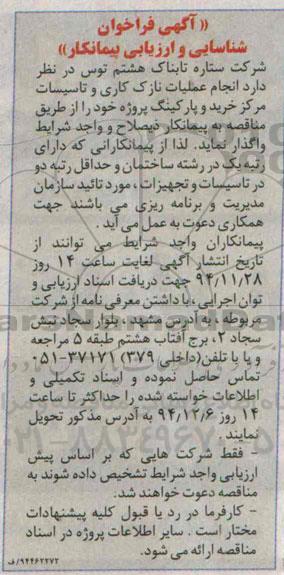 « آگهی فراخوان
شناسایی و ارزیابی پیمانکار»
شرکت ستاره تابناک هشتم توس در نظر
دارد انجام عملیات نازک کاری و تاسیسات
مرکز خرید و پارکینگ پروژه خود را از طریق
مناقصه به پیمانکار ذیصلاح و واجد شرایط
واگذار نماید. لذا از پیمانکارانی که دارای
رتبه یک در رشته ساختمان و حداقل رتبه دو
در تاسیسات و تجهیزات ، مورد تائید سازمان
مدیریت و برنامه ریزی می باشند جهت
همکاری دعوت به عمل می آید .
پیمانکاران واجد شرایط می توانند از
تاریخ انتشار آگهی لغایت ساعت ۱۴ روز
۹۴,۱۱,۲۸ جهت دریافت اسناد ارزیابی و
توان اجرایی ، با داشتن معرفی نامه از شرکت
مربوطه ، به آدرس مشهد ، بلوار سجاد نبش
سجاد ۲، برج آفتاب هشتم طبقه ۵ مراجعه
و یا با تلفن(داخلی ۳۷۹) ۳۷۱۷۱-۰۵۱
تماس حاصل نموده و اسناد تکمیلی و
اطلاعات خواسته شده را حداکثر تا ساعت
۱۴ روز ۹۴,۱۲,۶ به آدرس مذکور تحویل
نمایند .
- فقط شرکت هایی که بر اساس پیش
ارزیابی واجد شرایط تشخیص داده شوند به
مناقصه دعوت خواهند شد.
- کارفرما در رد یا قبول کلیه پیشنهادات
مختار است . سایر اطلاعات پروژه در اسناد
مناقصه ارائه می شود.
۹۴۴۶۲۲۷۲/ف